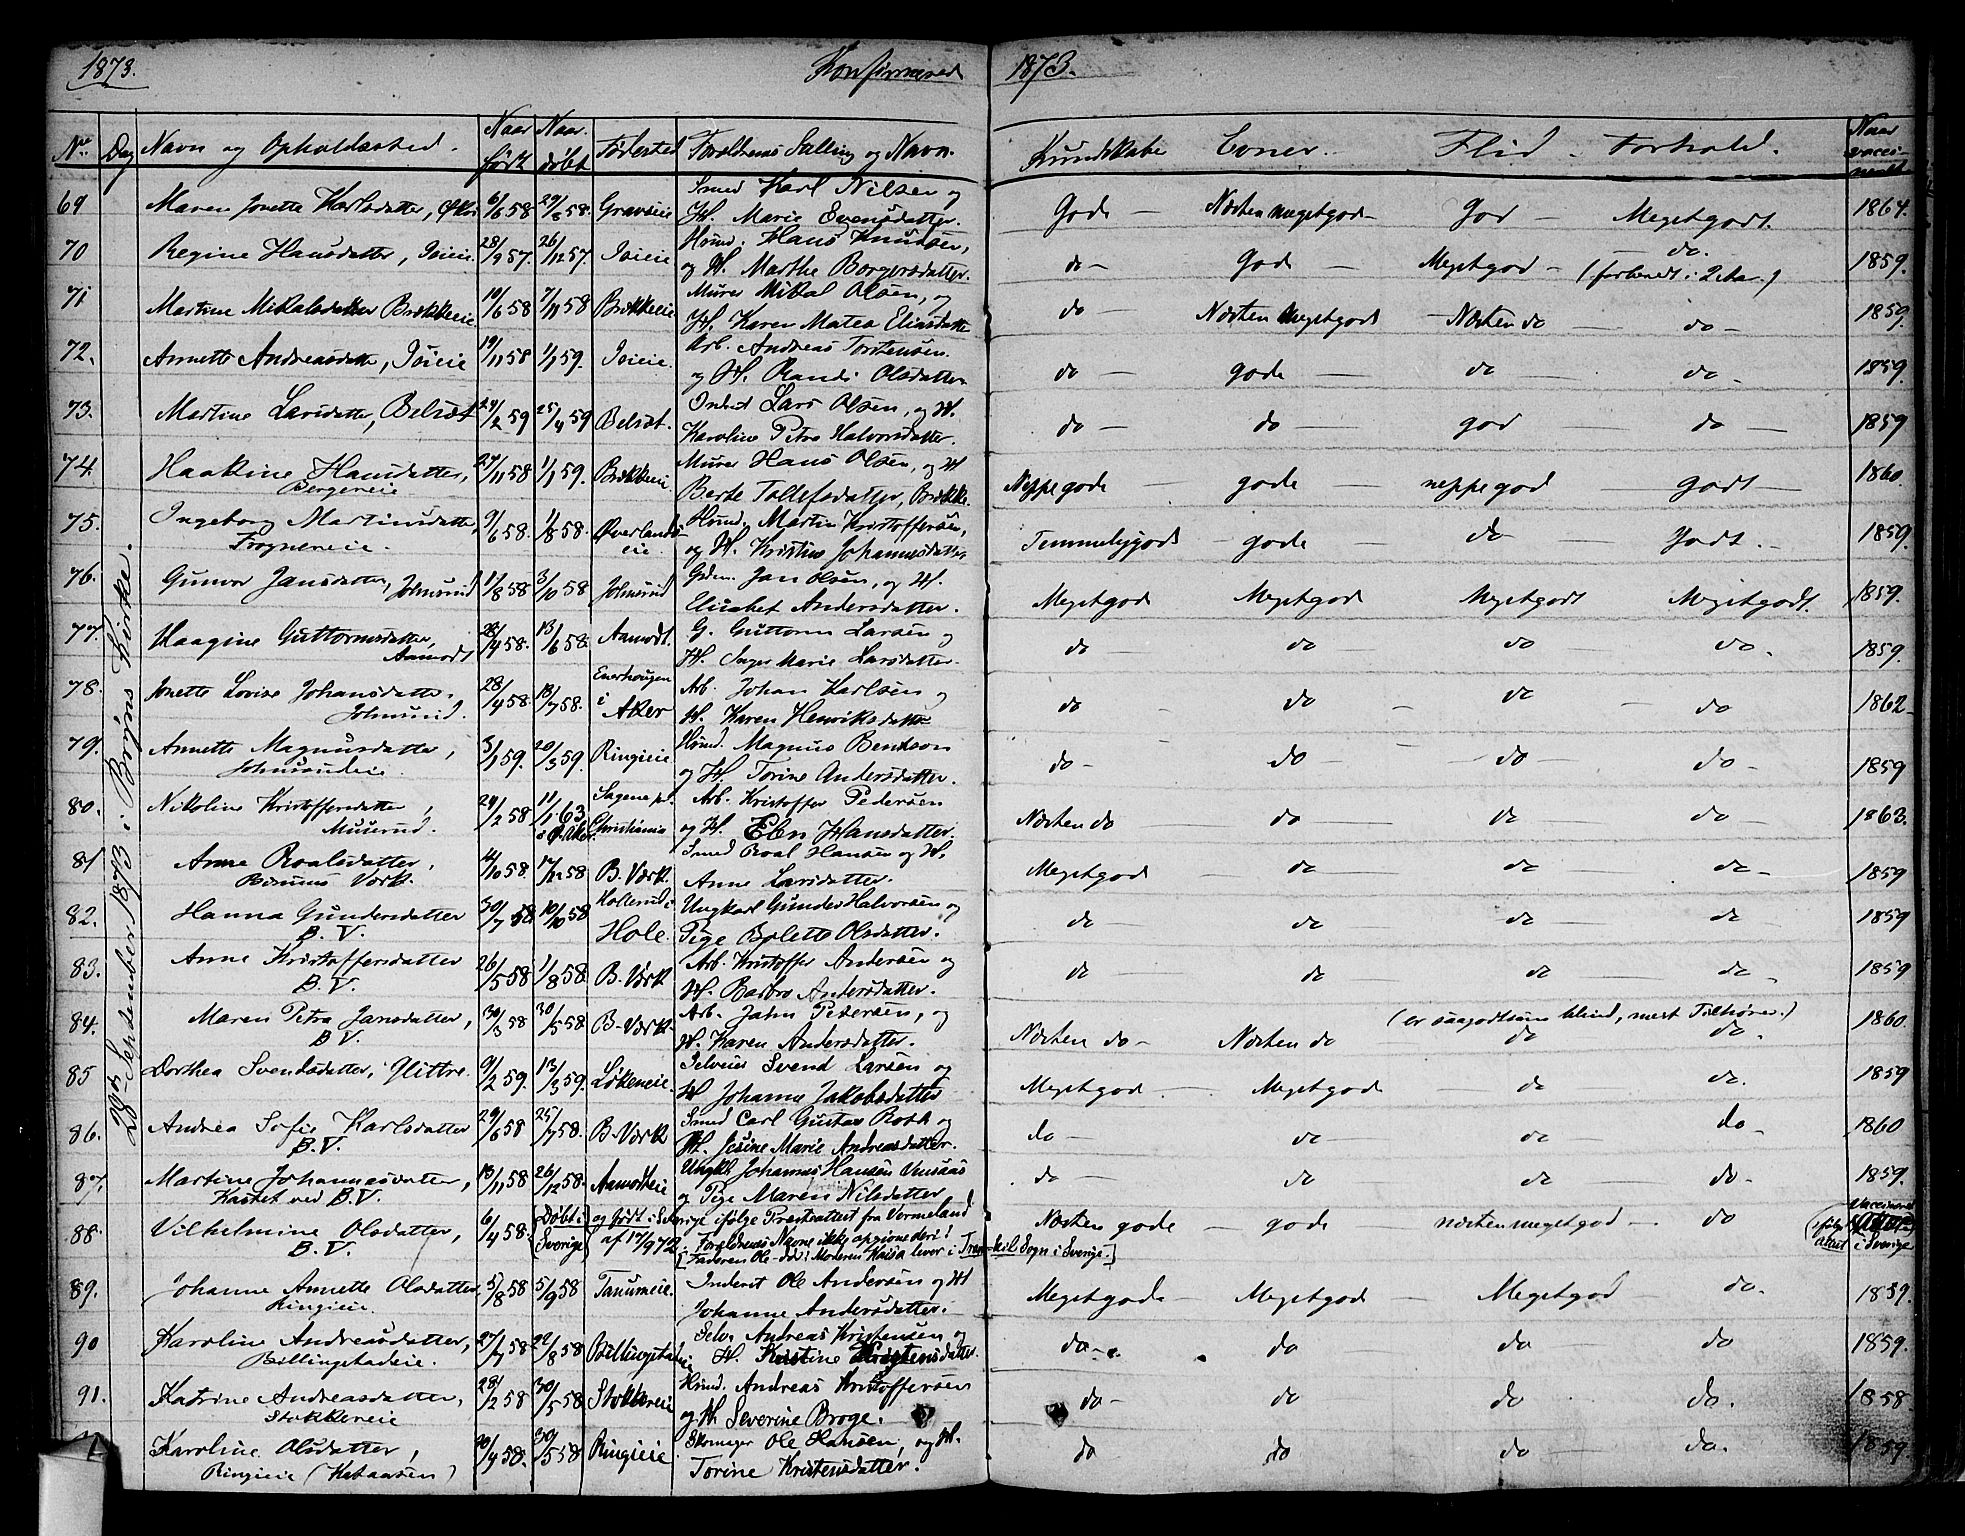 1873. Konfirmerede 1873.
No. Dag Navn og Opholdssted. Naar født Naar døbt Fødested Forældrenes Stilling og Navn. Kundskaber Evner. Flid. Forhold. Naar vaccineret
28de September 1873 i Bryns Kirke.
69 Maren Jonette Karlsdatter, 6/6 58 29/8 58. Gravseie Smed Karl Nilsen og Gode – Næsten megetgode – God – Megetgodt. 1864.
H. Marie Evensdatter.
70 Regine Hansdatter, Isieie. 28/9 57. 26/12 57. Isieie Husmd. Hans Knudsen, do – gode – Megetgod – do. 1859.
og H. Marthe Borgersdatter. (forberedt i 2 Aar.)
71 Martine Mikalsdatter Brækkeie 10/6 58 7/11 58 Brækkeie Murer Mikal Olsen, og do – Næsten Megetgode – Næsten do – do – 1859.
H. Karen Matea Eliasdatter
72. Annette Andreasdatter, Isieie 19/11 58 1/1 59. Isieie. Arb. Andreas Torstensen. do – gode – do – do – 1859.
og H. Randi Olsdatter
73. Martine Larsdatter, Belset 24/2 59 25/4 59 Belset. Inderst Lars Olsen, og H. do – do – god do – 1859
Karoline Petra Halvorsdatter.
74. Haakine Hansdatter, 27/11 58 1/1 59. Brækkeie. Murer Hans Olsen, og H. Neppe gode – gode – neppe god – Godt – 1860.
Bergereie Berte Tollefsdatter, Brække.
75. Ingeborg Martinusdatter, 9/6 58. 1/8 58. Øverlands- Husmd. Martin Kristoffersen, Temmeliggode – gode – do – Godt. – 1859.
Frognereie. eie. og H. Kristine Johannesdatter.
76. Gunvor Jansdatter, Johnsrud 1/8 58 3/10 58 Johnsrud Grdm. Jan Olsen, og H. Megetgod Megetgod Megetgodt Megetgodt. 1859.
Elisabet Andersdatter.
77. Haagine Guttormsdatter, 28/4 58. 13/6 58. Aamodt. G. Guttorm Larsen og do – do do do. 1859.
Aamodt H. Inger Marie Larsdatter.
78. Jonette Lovise Johansdatter. 28/4 58. 18/7 58. Enerhougen i Aker Arb. Johan Karlsen og do – do – do – do 1862
Johnsrud. H. Karen Henriksdatter
79. Annette Magnusdatter, 3/1 59. 20/3 59. Ringieie Husmd. Magnus Bentson do – do – do – do 1859
Johnsrudeie. og H. Torine Andersdatter.
80. Nikoline Kristoffersdatter, 24/2 58 11/1 63. Sagene pd. Christiania Arb. Kristoffer Pedersen Næsten do do – do – do – 1863.
Muserud. og H. Elen Hansdatter.
81 Anne Roalsdatter, 14/10 58. 17/12 58 B. Værk. Smed Roal Hansen og H. Megetgod do – do – do – 1859
Bærums Værk. Anne Larsdatter.
82. Hanna Gundersdatter 30/7 58. 10/10 58 Hollerud i Hole. Ungkarl Gunder Halvorsen og do do do do 1859
B. V. Pige Bolette Olsdatter.
83. Anne Kristoffersdatter 26/5 58 1/8 58. B. Værk Arb. Kristoffer Andersen og do – do do do 1859
B. V. H. Barbro Andersdatter.
84. Maren Petra Jansdatter, 30/3 58 30/5 58. B. Værk. Arb. Jahn Pedersen, og (er saagodtsom blind, mest Tilhører.) 1860.
B V. H. Karen Andersdatter. Næsten do – Næsten do do do.
85 Dorthea Svendsdatter, Glittre. 9/2 59. 13/3 59. Løkeneie. Selveier Svend Larsen og Megetgod. Megetgod do do. 1859
H Johanne Jakobsdatter
86. Andrea Sofie Karlsdatter 29/6 58 25/7 58. B. Værk Smed Carl Gustav Roth og do – do – do do – 1860
B. V. H. Jesine Marie Andreasdatter.
87. Martine Johannesdatter, 13/11 58 26/12 58. Aamodteie Ungkl. Johannes Hansen Vensaas do – do do – do – 1859.
Kastet ved B. V. og Pige Maren Nilsdatter
88. Vilhelmine Olsdatter, 6/4 58. (Døbt i Sverige) og født i Sverige ifølge Præsteattest fra Vermeland Næsten gode – gode næsten megetgod – do Vaccineret
B. V. af 17/9 72. Forældrenes Navne ikke opgivne deri! ifølge attest i Sverige
[Faderen Ole død; Moderen Kaisa lever i Trankil Sogn i Sverige.]
89. Johanne Annette Olsdatter 5/8 58 5/9 58 Tanumeie. Inderst Ole Andersen og H Megetgode – Megetgod – Megetgod – do. 1859.
Ringieie. Johanne Andersdatter.
90 Karoline Andreasdatter, 27/7 58 22/8 58 Billingstadeie Selv. Andreas Kristensen og do – do do do 1859.
Billingstadeie. H. Kristine Kristensdatter.
91. Katrine Andreasdatter, 28/2 58 30/5 58 Stokkereie Husmd. Andreas Kristoffersen do – do do do. 1858
Stokkereie og H Severine Broge.
Karoline Olsdatter, 20/4 58. 30/5 58 Ringieie Skomager Ole Hansen, og H. do do do – do. 1859.
Ringieie (Kataasen) Torine Kristensdatter.